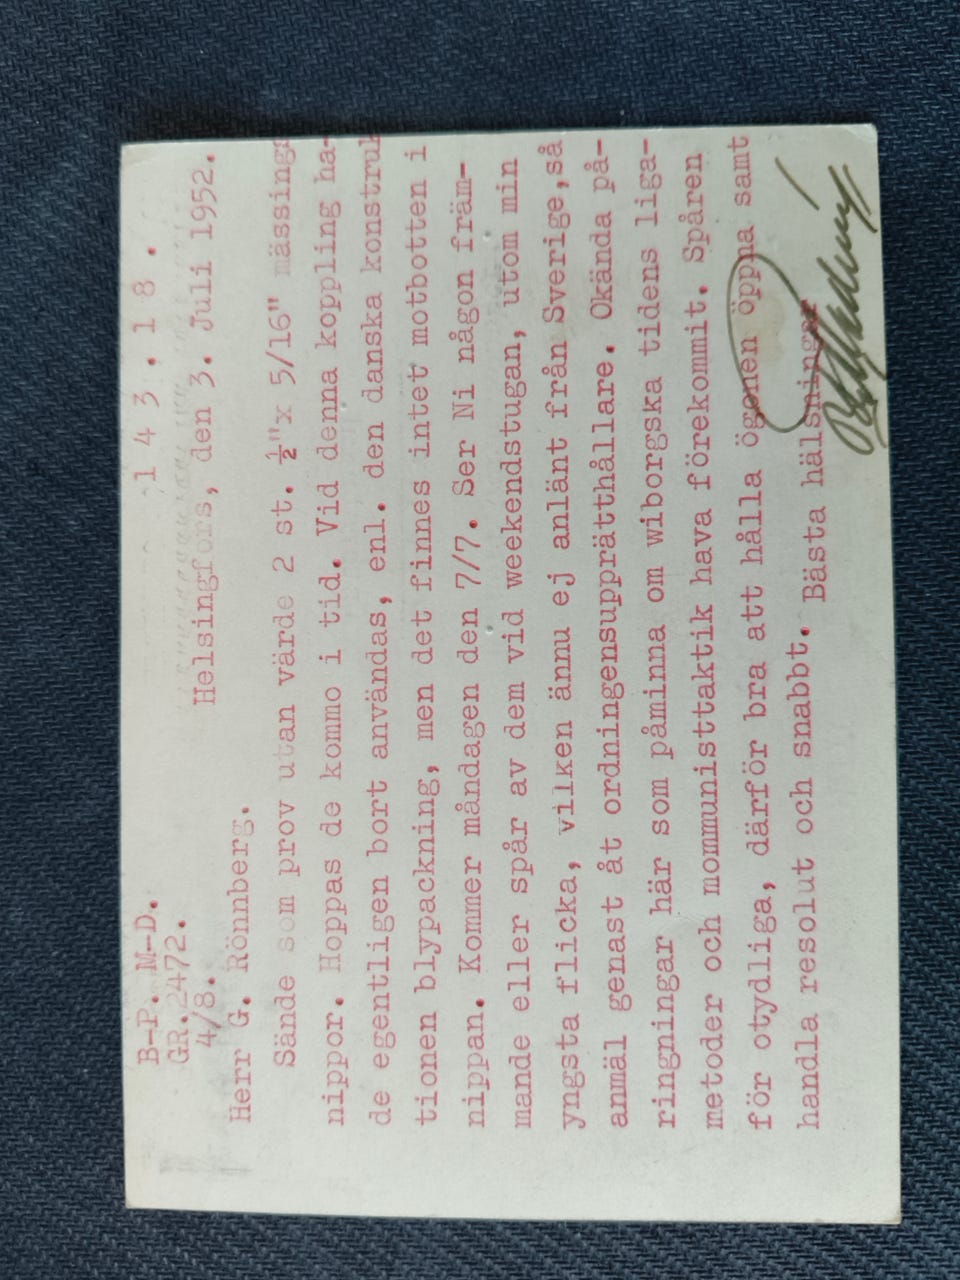 B-P. M-D. 1 4 3 . 1 8 .
GR.2472.
4/8. Helsingfors, den 3. Juli 1952.
Herr G. Rönnberg.
Sände som prov utan värde 2 st. ½"x 5/16" mässings
nippor. Hoppas de kommo i tid. Vid denna koppling ha-
de egentligen bort användas, enl. den danska konstruk
tionen blypackning, men det finnes intet motbotten i
nippan. Kommer måndagen den 7/7. Ser Ni någon främ-
mande eller spår av dem vid weekendstugan, utom min
yngsta flicka, vilken ännu ej anlänt från Sverige,så
anmäl genast åt ordningensupprätthållare. Okända på-
ringningar här som påminna om wiborgska tidens liga-
metoder och mommunisttaktik hava förekommit. Spåren
för otydliga, därför bra att hålla ögonen öppna samt
handla resolut och snabbt. Bästa hälsningar